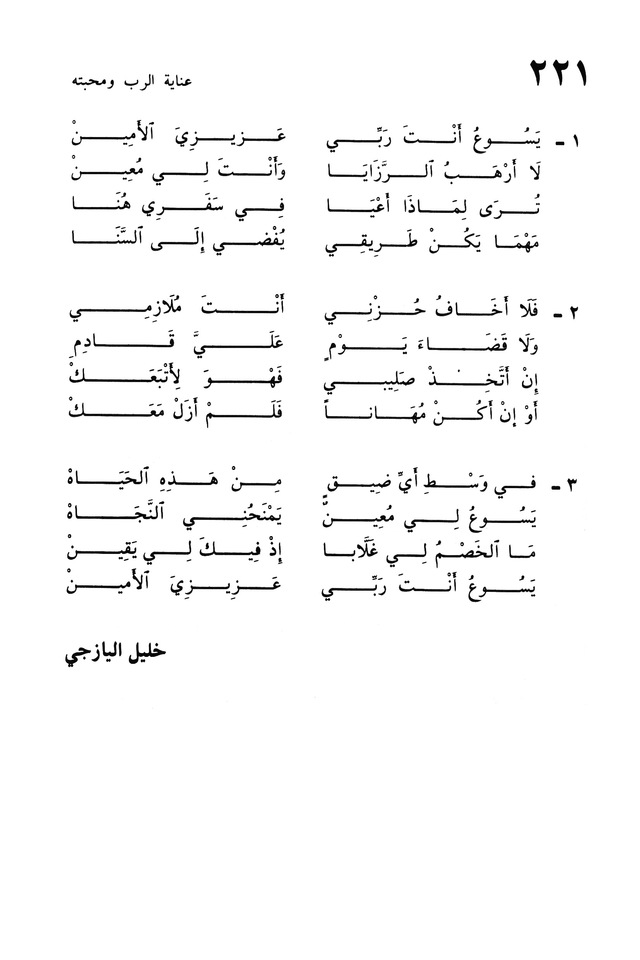 ٢٢١
عناية الرب ومحبته
١ ـ يَسُوعُ أَنْتَ رَبِّي عَزِيزِيَ ٱلأَمِينْ
لَا أَرْهَبُ ٱلرَّزَايَا وَأَنْتَ لِي مُعِينْ
تُرَى لِمَاذَا أَعْيَا فِي سَفَرِي هُنَا
مَهْمَا يَكُنْ طَرِيقِي يُفْضِي إِلَى ٱلسَّنَا
٢ ـ فَلَا أَخَافُ حُزْنِي أَنْتَ مُلَازِمِي
وَلَا قَضَاءَ يَوْمٍ عَلَيَّ قَادِمِ
إِنْ أَتَّخِذْ صَلِيبِي فَهْوَ لِأَتْبَعَكْ
أَوْ إِنْ أَكُنْ مُهَاناً فَلَمْ أَزَلْ مَعَكْ
٣ ـ فِي وَسْطِ أَيِّ ضِيقٍ مِنْ هَذِهِ ٱلحَيَاةْ
يَسُوعُ لِي مُعِينٌ يَمْنَحُنِي ٱلنَّجَاةْ
مَا ٱلخَصْمُ لِي غَلَّابا إِذْ فِيكَ لِي يَقِينْ
يَسُوعُ أَنْتَ رَبِّي عَزِيزِيَ ٱلأَمِينْ
خليل اليازجي